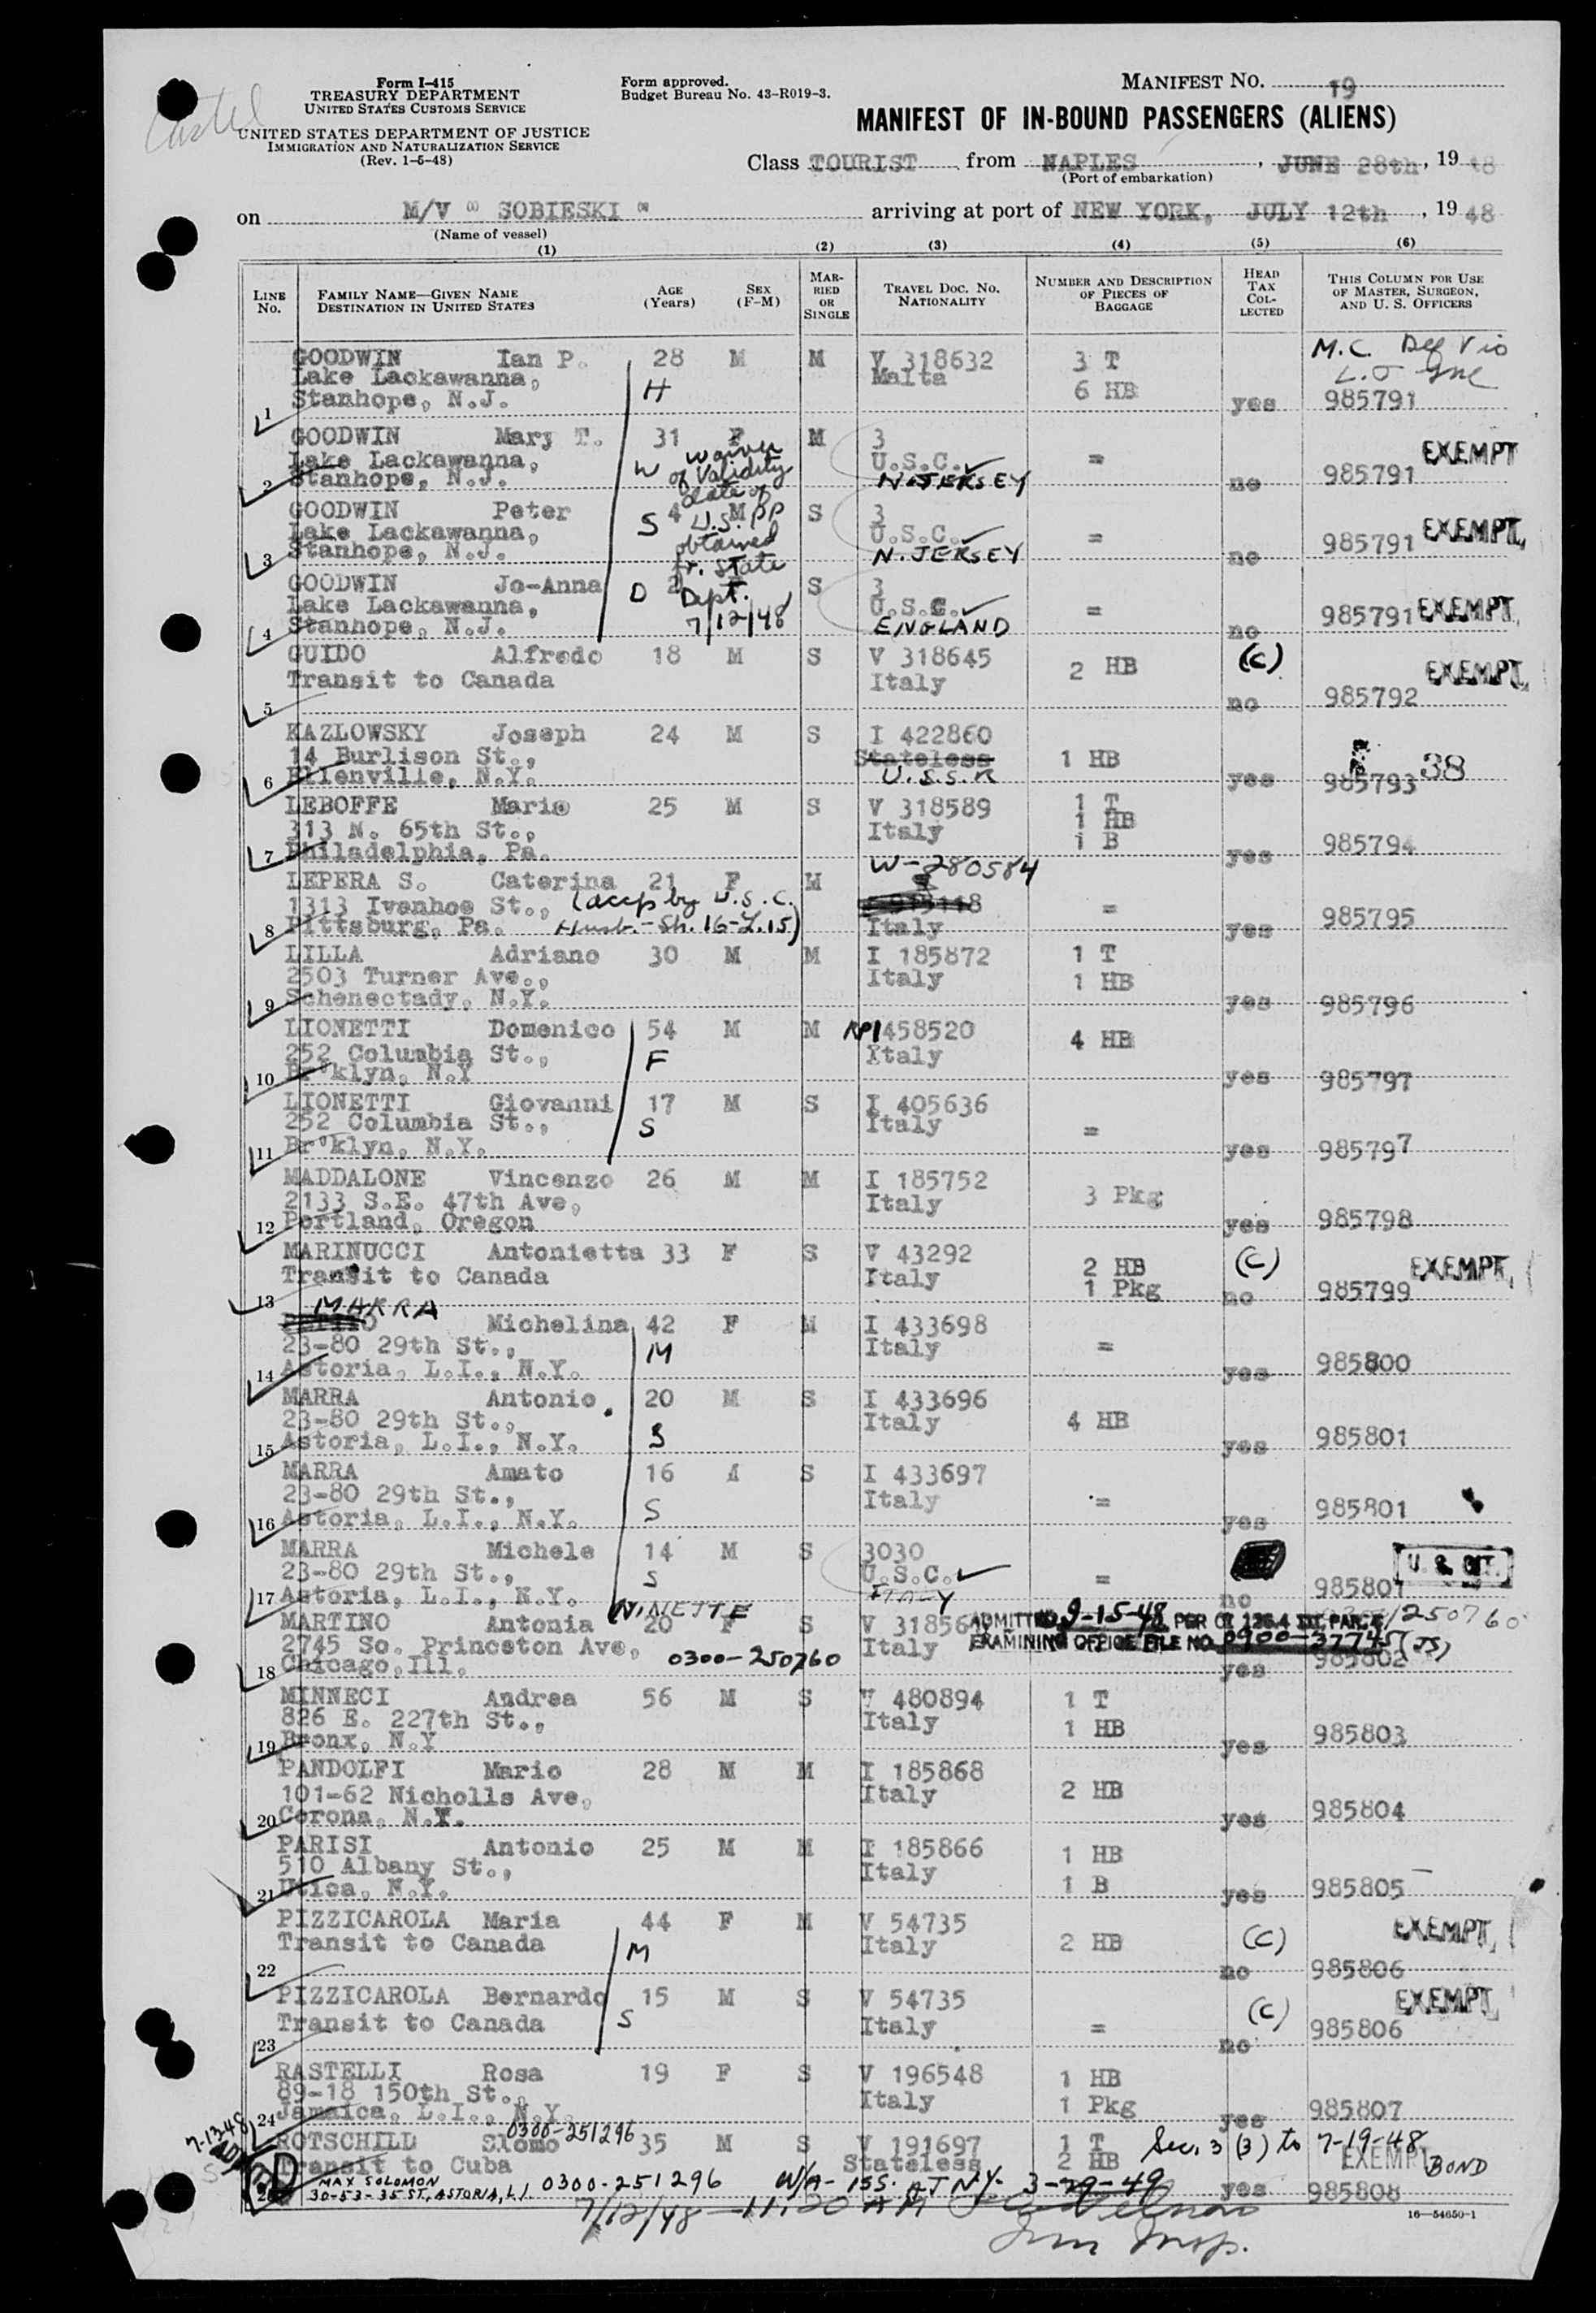 Form I-415
TREASURY DEPARTMENT
UNITED STATES CUSTOMS SERVICE
UNITED STATES DEPARTMENT OF JUSTICE
IMMIGRATION AND NATURALIZATION SERVICE
(Rev. 1-5-48)
Form approved.
Budget Bureau No. 43-R019-3.
MANIFEST NO. 19
MANIFEST OF IN-BOUND PASSENGERS (ALIENS)
Class TOURIST from NAPLES, JUNE 28th, 19 48
(Port of embarkation)
on M/V " SOBIESKI " arriving at port of NEW YORK, JULY 12th, 19 48
(Name of vessel)
(1) (2) (3) (4) (5) (6)
LINE No. FAMILY NAME—GIVEN NAME DESTINATION IN UNITED STATES AGE (Years) SEX (F-M) MARRIED OR SINGLE TRAVEL DOC. NO. NATIONALITY NUMBER AND DESCRIPTION OF PIECES OF BAGGAGE HEAD TAX COLLECTED THIS COLUMN FOR USE OF MASTER, SURGEON, AND U. S. OFFICERS
M.C. Def Vio
GOODWIN Ian P. 28 M M V 318632 3 T
Lake Lackawanna, H Malta 6 HB
1 Stanhope, N.J. yes 985791
GOODWIN Mary T. 31 F M 3 EXEMPT
Lake Lackawanna, W waiver of Validity U.S.C. =
2 Stanhope, N.J. date of N. JERSEY no 985791
GOODWIN Peter S 4 M U.S. PP S 3 EXEMPT
Lake Lackawanna, obtained U.S.C. =
3 Stanhope, N.J. fr. State N. JERSEY no 985791
GOODWIN Jo-Anna D 2 Dept. S 3
Lake Lackawanna, 7/12/48 U.S.C. = EXEMPT
4 Stanhope, N.J. ENGLAND no 985791
GUIDO Alfredo 18 M S V 318645 2 HB (c) EXEMPT
Transit to Canada Italy
5 no 985792
KAZLOWSKY Joseph 24 M S I 422860
14 Burlison St., Stateless 1 HB 38
6 Ellenville, N.Y. U.S.S.R yes 985793
LEBOFFE Mario 25 M S V 318589 1 T
313 N. 65th St., Italy 1 HB
7 Philadelphia, Pa. 1 B yes 985794
W-280584
LEPERA S. Caterina 21 F M
1313 Ivanhoe St., (accp by U.S.C. =
8 Pittsburg, Pa. Husb.-Sh. 16-L.15) Italy yes 985795
LILLA Adriano 30 M M I 185872 1 T
2503 Turner Ave., Italy 1 HB
9 Schenectady, N.Y. yes 985796
LIONETTI Domenico 54 M M RP1458520 4 HB
252 Columbia St., F Italy
10 Br'klyn, N.Y yes 985797
LIONETTI Giovanni 17 M S I 405636
252 Columbia St., S Italy =
11 Br'klyn, N.Y. yes 985797
MADDALONE Vincenzo 26 M M I 185752
2133 S.E. 47th Ave, Italy 3 Pkg
12 Portland, Oregon yes 985798
MARINUCCI Antonietta 33 F S V 43292 2 HB (c) EXEMPT
Transit to Canada Italy 1 Pkg
13 no 985799
MARRA
Michelina 42 F M I 433698
23-80 29th St., M Italy =
14 Astoria, L.I., N.Y. yes 985800
MARRA Antonio 20 M S I 433696
23-80 29th St., Italy 4 HB
15 Astoria, L.I., N.Y. S yes 985801
MARRA Amato 16 M S I 433697
23-80 29th St., Italy =
16 Astoria, L.I., N.Y. S yes 985801
MARRA Michele 14 M S 3030
23-80 29th St., S U.S.C. = U. S. CIT.
17 Astoria, L.I., N.Y. ITALY no 985801
NINETTE
MARTINO Antonia 20 F S V 31856 ADMITTED 9-15-48 PER 250760
2745 So. Princeton Ave, 0300-250760 Italy EXAMINING OFFICE FILE NO. (JS)
18 Chicago, Ill. yes 985802
MINNECI Andrea 56 M S V 480894 1 T
826 E. 227th St., Italy 1 HB
19 Bronx, N.Y yes 985803
PANDOLFI Mario 28 M M I 185868
101-62 Nicholls Ave, Italy 2 HB
20 Corona, N.Y. yes 985804
PARISI Antonio 25 M M I 185866 1 HB
510 Albany St., Italy 1 B
21 Utica, N.Y. yes 985805
PIZZICAROLA Maria 44 F M V 54735 EXEMPT
Transit to Canada M Italy 2 HB (c)
22 no 985806
PIZZICAROLA Bernardo 15 M S V 54735 EXEMPT
Transit to Canada S Italy = (c) 985806
23 no
RASTELLI Rosa 19 F S V 196548 1 HB
89-18 150th St., Italy 1 Pkg
24 Jamaica, L.I., N.Y. yes 985807
7-13-48 0300-251296
ROTSCHILD Slomo 35 M S V 191697 1 T Sec. 3 (3) to 7-19-48
Transit to Cuba Stateless 2 HB EXEMPT BOND
MAX SOLOMON 0300-251296 W/A- ISS. AT N.Y. 3-29-49 yes 985808
30-53-35 ST, ASTORIA, L.I.
7/12/48 - 11:30 AM
Imm Insp.
16—54650-1